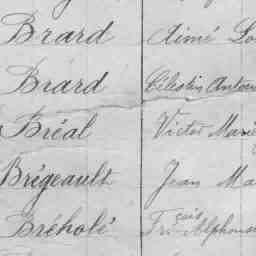 Brard Aimé Lo
Brard Célestin Antoin
Bréal Victor Marie
Brégeault Jean Ma
Bréholé Fr.çois Alphonse